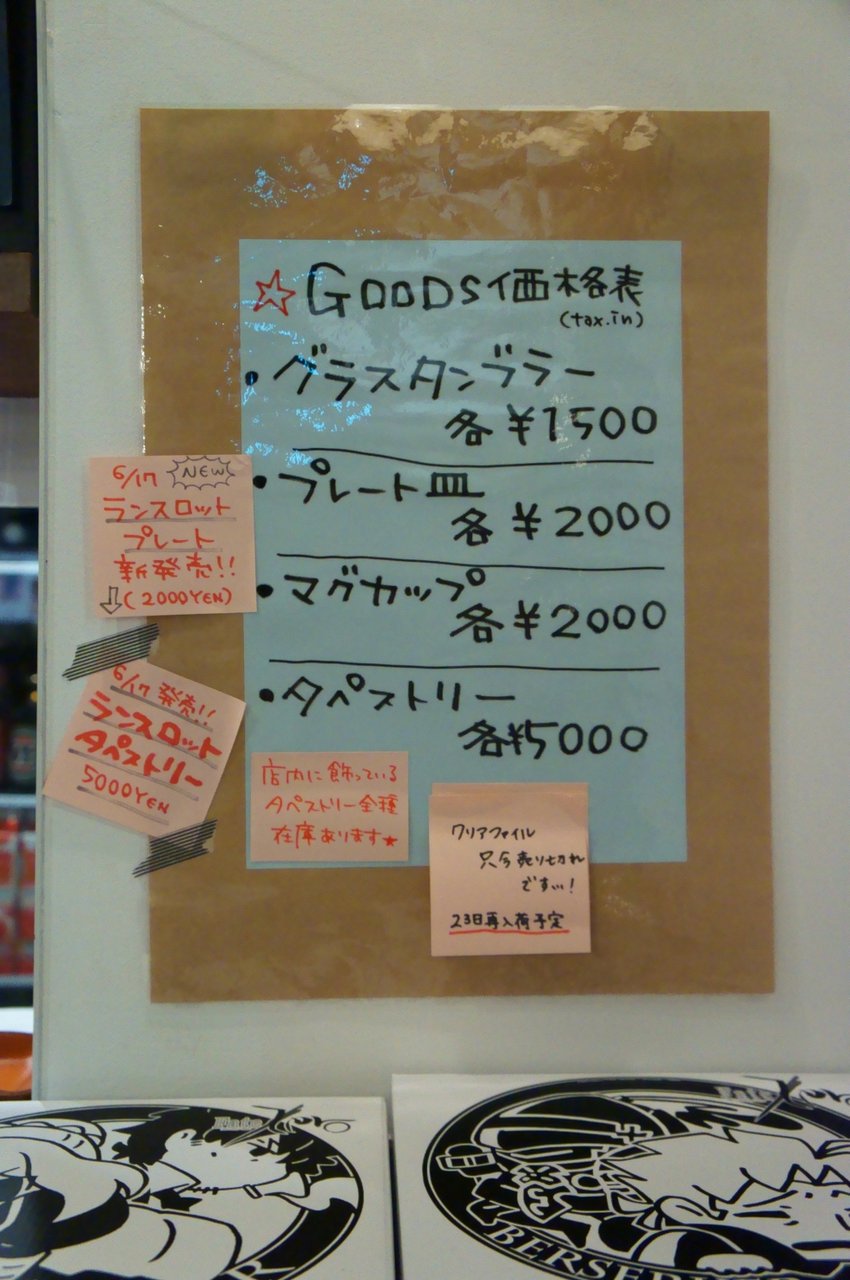 ☆GOODS価格表
(tax.in)
・グラスタンブラー
各¥1500
・プレート皿
各¥2000
・マグカップ
各¥2000
・タペストリー
各¥5000
6/17 NEW
ランスロット
プレート
新発売!!
⇩(2000YEN)
6/17 発売!!
ランスロット
タペストリー
5000YEN
店内に飾っている
タペストリー全種
在庫あります★
クリアファイル
只今売り切れ
です…!
23日再入荷予定
Fate Zero
BERSER